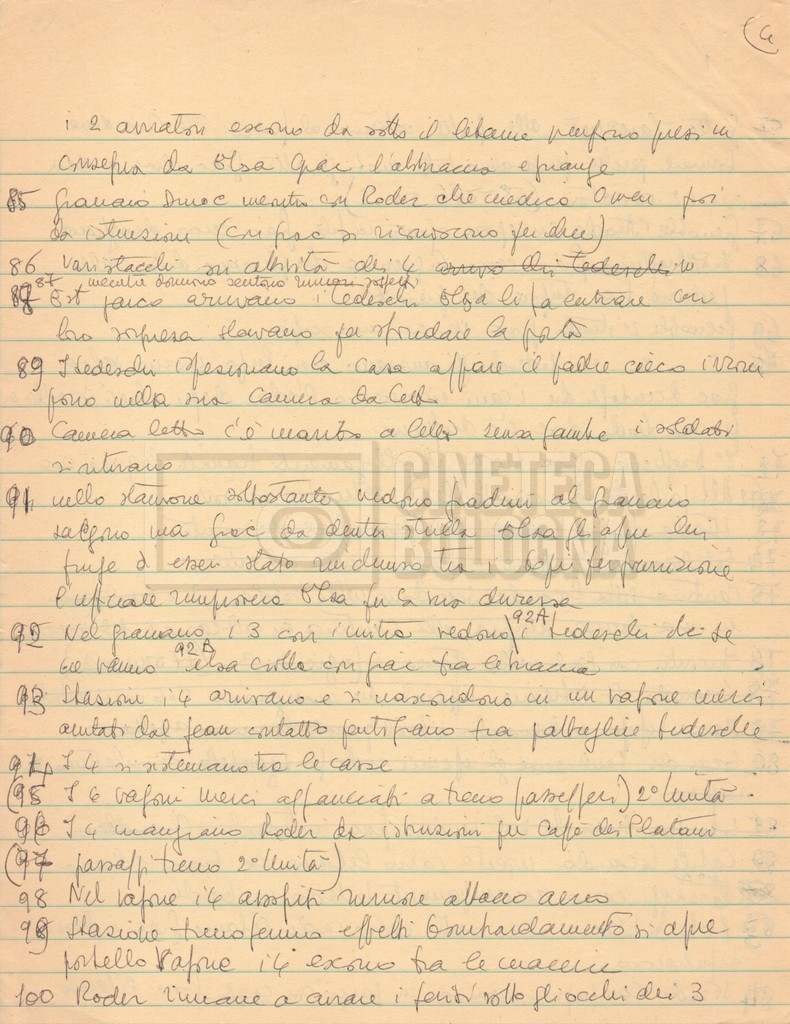 (4
i 2 aviatori escono da sotto il letame vengono presi in
consegna da Elsa Grac l'abbraccia e piange
85 granaio Duroc mentre con Roder che medica Owen poi
da istruzioni (con Grac si riconoscono
86 Vari stacchi su attività dei 4 arrivo dei tedeschi
87 mentre dormono sentono rumori sospetti
88 Est parco arrivano i tedeschi Elsa li fa entrare con
loro sorpresa stavano per sfondare la porta
89 I tedeschi ispezionano la casa appare il padre cieco irrom
pono nella sua camera da letto
90 Camera letto c'è marito a letto senza gambe i soldati
si ritirano
91 nello stanzone sottostante vedono gradini al granaio
salgono ma Grac da dentro strilla Elsa gli apre lei
finge di esser stata rinchiusa tra i topi per punizione
l'ufficiale rimprovera Elsa per la sua durezza
92 Nel granaio i 3 con i mitra vedono 92A i tedeschi che se
ne vanno 92B Elsa crolla con Grac tra le braccia
93 Stazione i 4 arrivano e si nascondono in un vagone merci
aiutati dal Jean contatto partigiano tra pattuglie tedesche
94 I 4 si sistemano tra le casse
(95 I 6 vagoni merci agganciati a treno passeggeri) 2° Unità
96 I 4 mangiano Roder da istruzioni per Caffè dei Platani
(97 passaggi treno 2° Unità)
98 Nel vagone i 4 assopiti rumore attacco aereo
99 Stazione treno fermo effetti bombardamento si apre
portello vagone i 4 escono tra le macerie
100 Roder rimane a curare i feriti sotto gli occhi dei 3
CINETECA
BOLOGNA